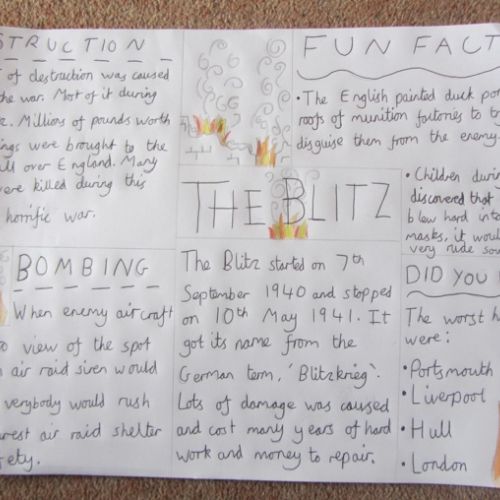 STRUCTION
of destruction was caused
the war. Most of it during
Millions of pounds worth
ings were brought to the
all over England. Many
were killed during this
horrific war.
BOMBING
When enemy aircraft
view of the spot
air raid siren would
verybody would rush
arest air raid shelter
fety.
THE BLITZ
The Blitz started on 7th
September 1940 and stopped
on 10th May 1941. It
got its name from the
German term, 'Blitzkrieg'.
Lots of damage was caused
and cost many years of hard
work and money to repair.
FUN FACT
• The English painted duck pon
roofs of munition factories to tr
disguise them from the enemy
• Children durin
discovered that
blew hard into
masks, it woul
very rude sou
DID YOU
The worst h
were:
• Portsmouth
• Liverpool
• Hull
• London